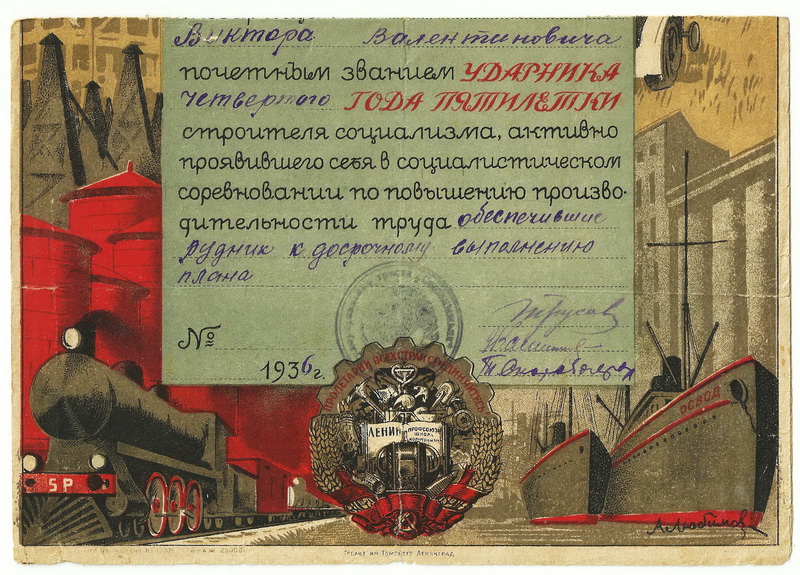 Виктора Валентиновича
почетным званием УДАРНИКА
четвертого ГОДА ПЯТИЛЕТКИ
строителя социализма, активно
проявившего себя в социалистическом
соревновании по повышению произво-
дительности труда обеспечившие
рудник к досрочному выполнению
плана
№
1936 г.
ПРОЛЕТАРИИ ВСЕХ СТРАН СОЕДИНЯЙТЕСЬ
ЛЕНИН
ПРОФСОЮЗЫ
ШКОЛА
КОММУНИЗМА
ОСВОД
5P